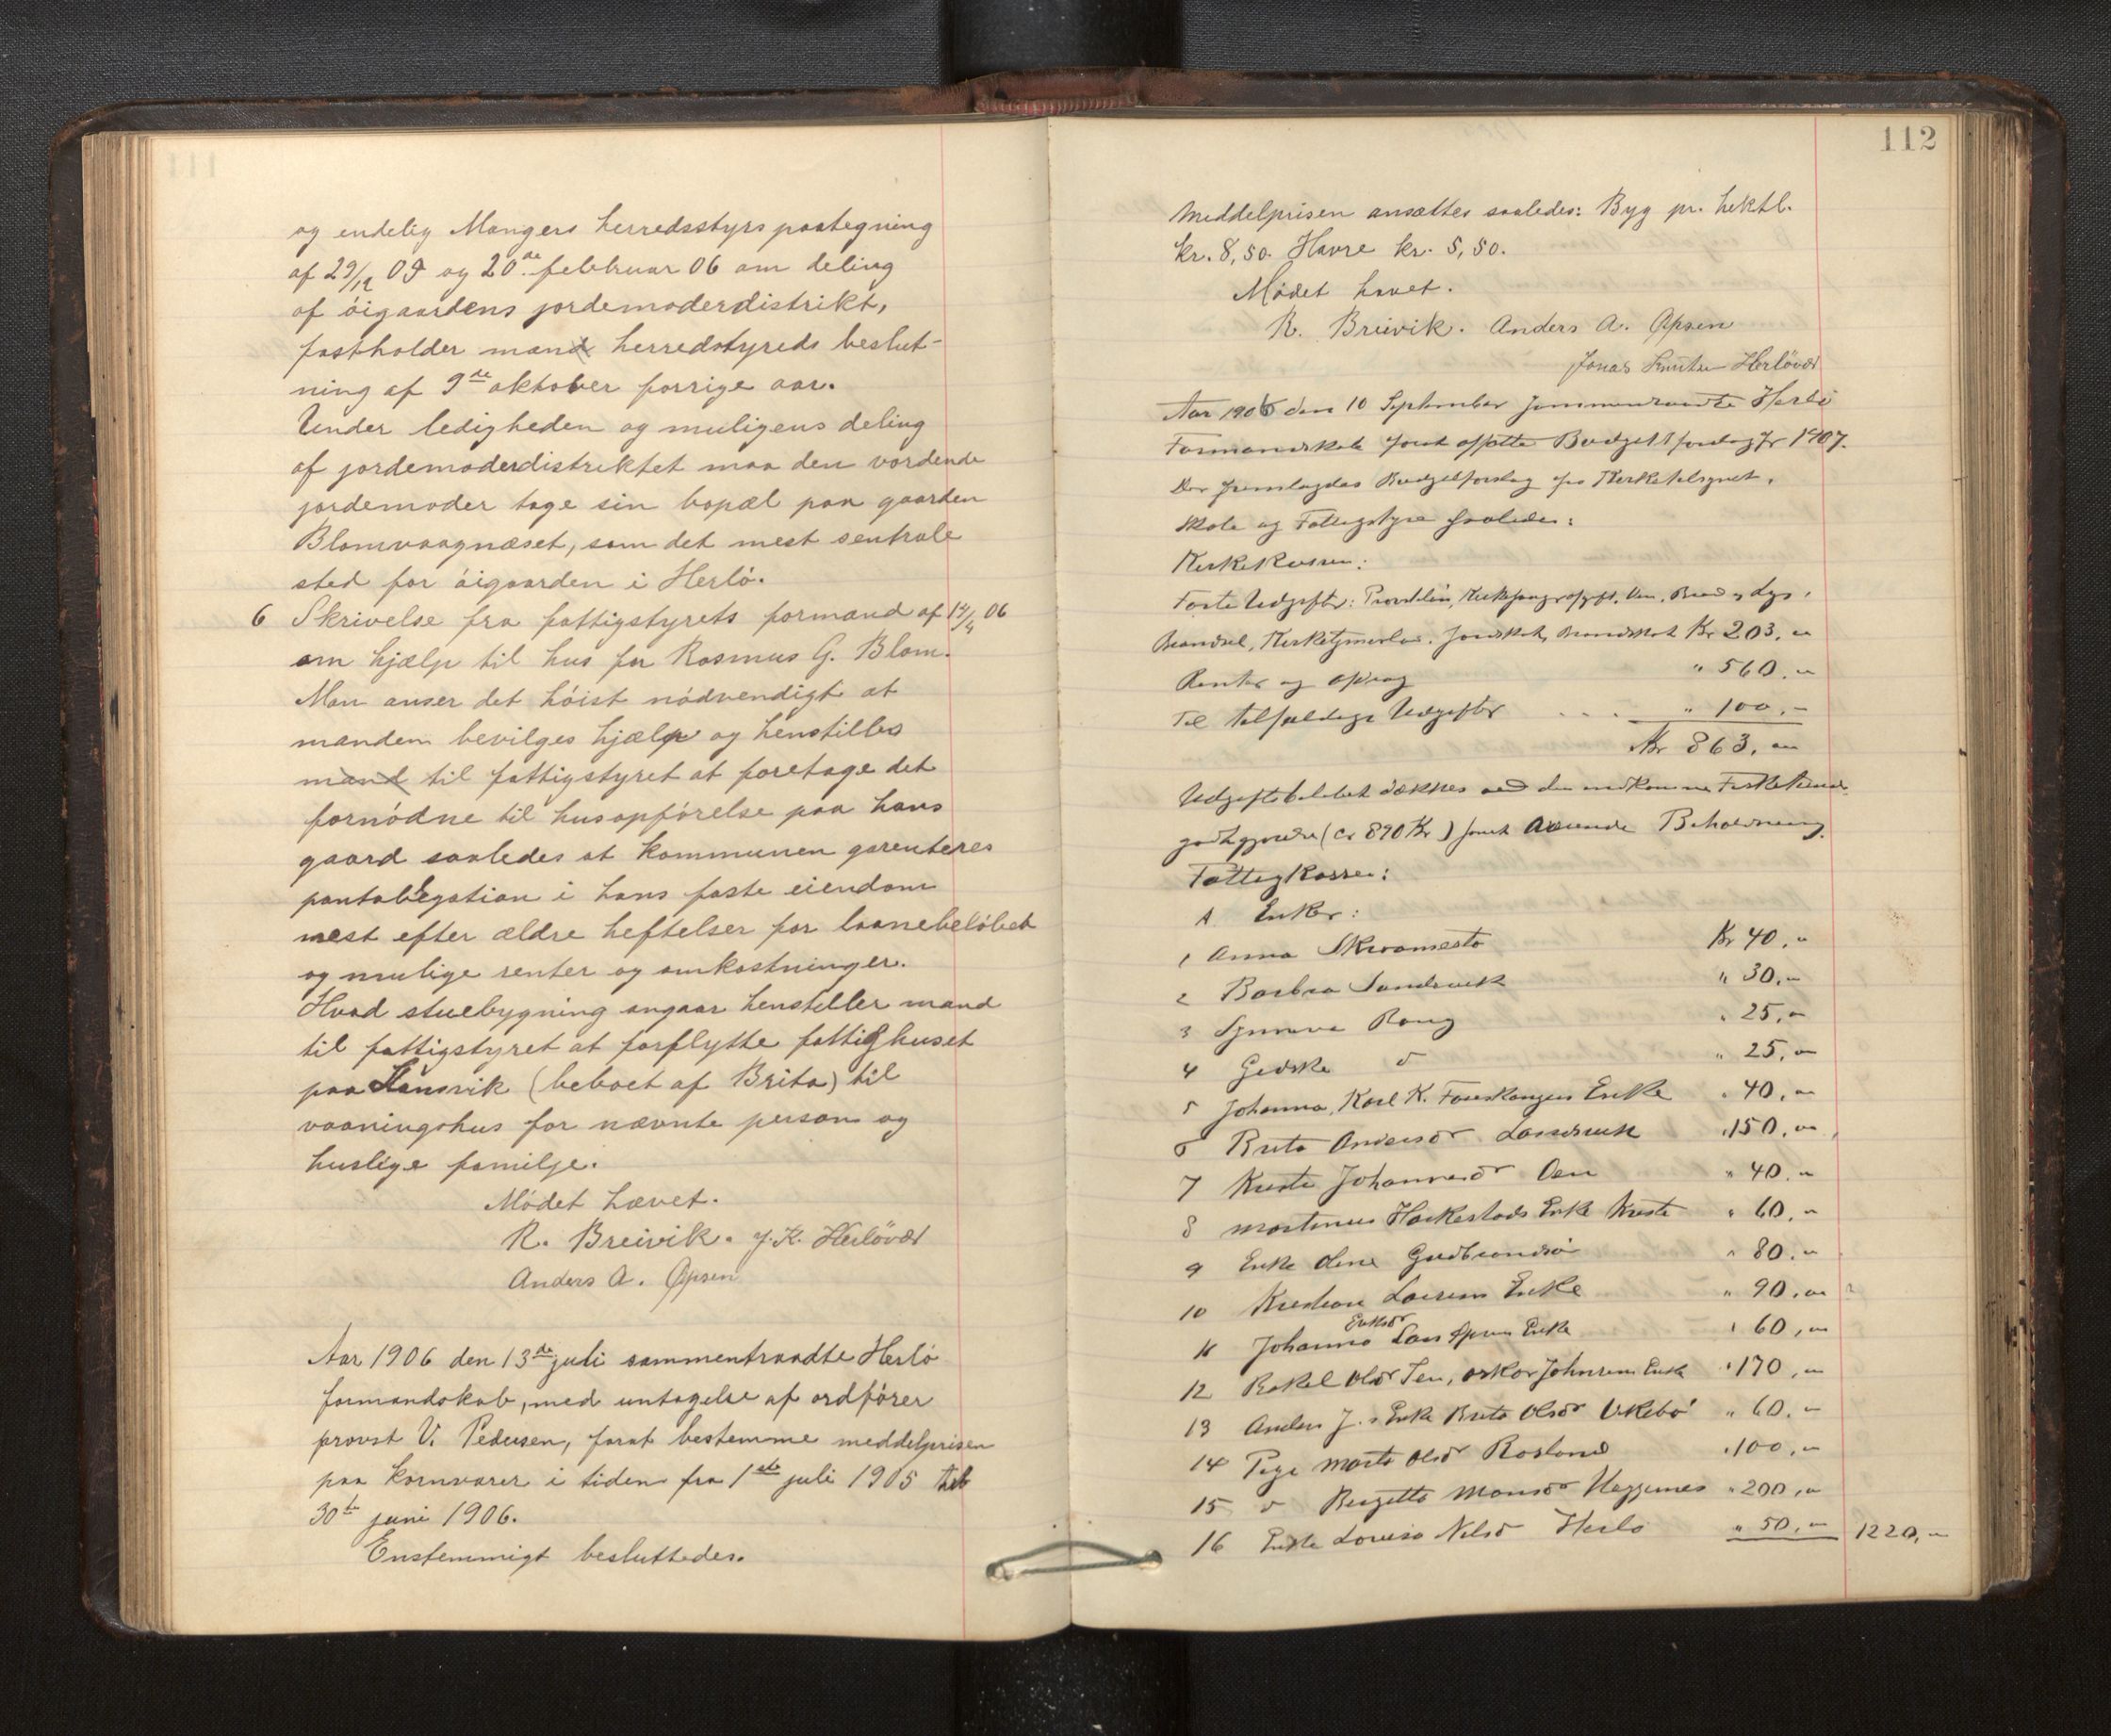 og endelig Mangers herredsstyrs paategning
af 29/12 05 og 20de februar 06 om deling
af öigaardens jordemoderdistrikt,
fastholder mand herredstyreds beslut-
ning af 9de oktober forrige aar.
Under ledigheden og muligens deling
af jordemoderdistriktet maa den vordende
jordemoder tage sin bopæl paa gaarden
Blomvaagnæset, som det mest sentrale
sted for öigaarden i Herlö.
6 Skrivelse fra fattigstyrets formand af 06
om hjælp til hus for Rasmus G. Blom.
Man anser det höist nödvendigt at
manden bevilges hjælp og henstilles
mand til fattigstyret at foretage det
fornödne til husopförelse paa hans
gaard saaledes at kommunen garenteres
pantobligation i hans faste eiendom
nest efter ældre heftelser for laanebelöbet
og mulige renter og omkostninger.
Hvad stuebygning angaar henstiller mand
til fattigstyret at forflytte fattighuset
paa (beboet af Brita) til
vaaningshus for nævnte person og
huslige familje.
Mödet hævet.
R. Breivik. J. K. Herlövær
Anders A. Opsen
Aar 1906 den 13de juli sammentraadte Herlö
formandskab, med untagelse af ordförer
provst V. Pedersen, forat bestemme meddelprisen
paa kornvarer i tiden fra 1ste juli 1905 til
30te juni 1906.
Enstemmigt besluttedes.
112
Meddelprisen ansættes saaledes: Byg pr. hektl.
kr. 8,50. Havre kr. 5,50.
Mödet hævet.
R. Breivik. Anders A. Opsen
Jonas Knutsen Herlövær
Aar 1906 den 10 September sammentraadte Herlö
Formandskab forat opsætte Budgetsforslag for 1907.
Der fremlagdes Budgetforslag fra Kirketilsynet,
Skole og Fattigstyre saaledes:
Kirkekassen:
Faste Udgifter: Kirkesangerafgift, Vin, Brød og Lys,
Brændsel, Kr 203,"
Renter og afdrag " 560,"
Til tilfældige Udgifter " 100,-
Kr 863,"
Udgiftsbeløbet dækkes ved den indkomne
godtgjørelse (ca 890 Kr) samt Beholdning.
Fattigkassen:
A Enker:
1 Anna Skraamestø Kr 40,"
2 Barbra Landsvik " 30,"
3 Synneva Rong " 25,"
4 Gjedske d " 25,"
5 Johanna, Karl K. Enke " 40,"
6 Brita Andersdr Landsvik " 150,"
7 Kirsti Johannesdr Oen " 40,"
8 Martinus Enke Kirsti " 60,"
9 Enke Oline Gudbrandsdr " 80,"
10 Enke " 90,"
11 Johanna Eriksdr Lars Opsens Enke " 60,"
12 Rakel Olsdr Oskar Johnsens Enke " 170,"
13 Anders J.s Enke Brita Olsdr Ukebø " 60,"
14 Pige Marta Olsdr Rosland " 100,"
15 d Monsdr " 200,"
16 Enke Lovisa Nilsd Herlø " 50,- 1220,-